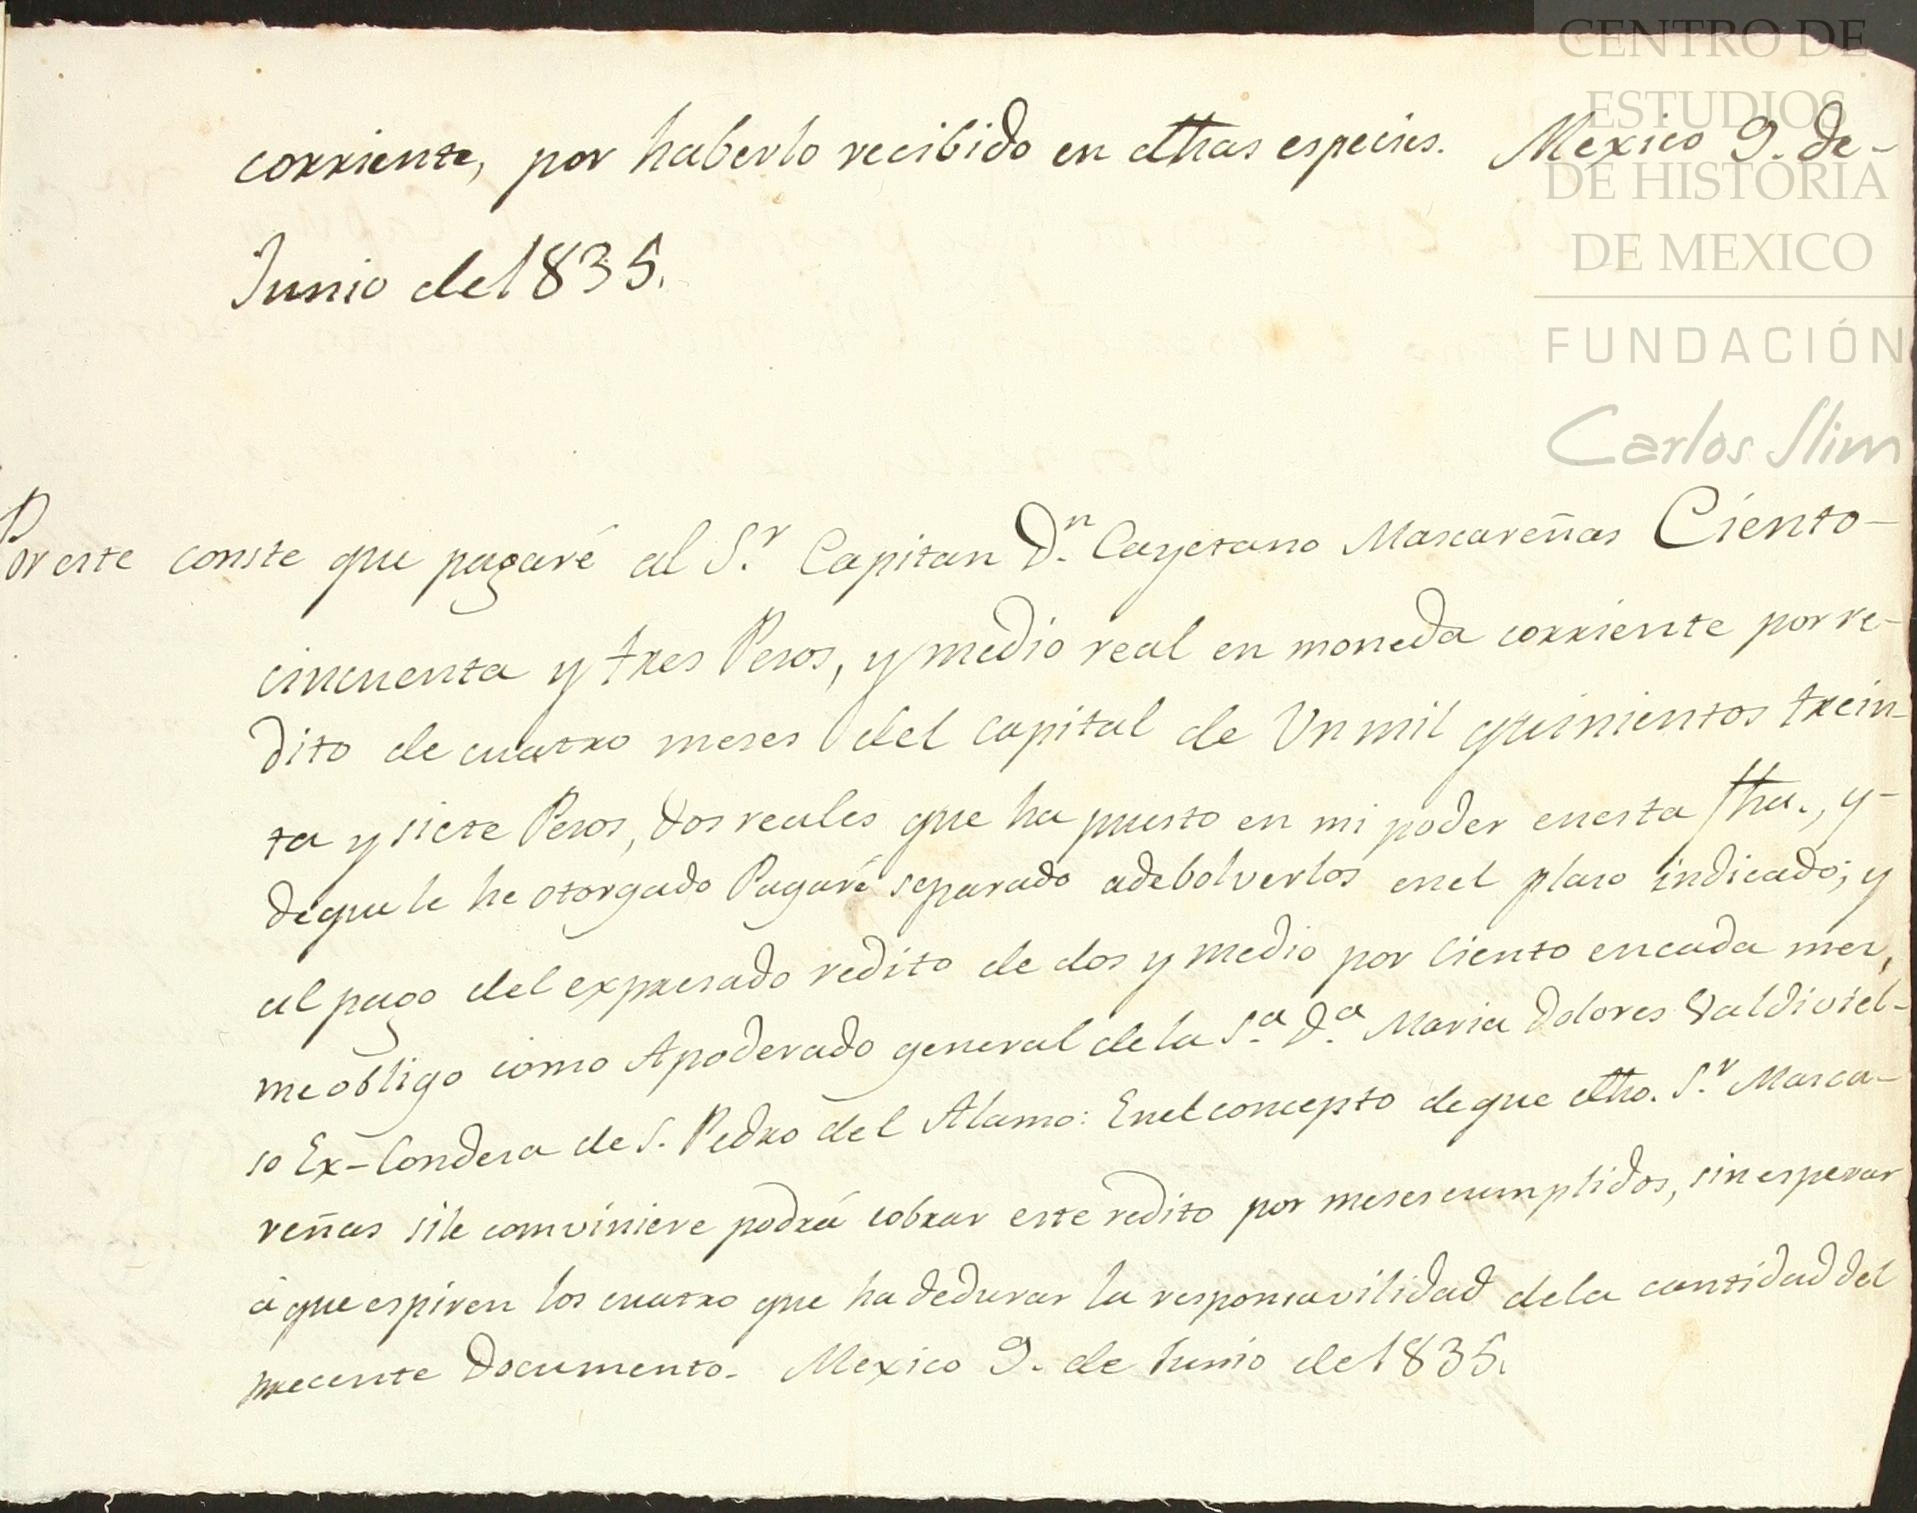 CENTRO DE
ESTUDIOS
DE HISTORIA
DE MEXICO
FUNDACIÓN
Carlos Slim
corriente, por haberlo recibido en dhas especies. Mexico 9. de-
Junio de 1835.
Por este conste que pagaré al S.r Capitan D.n Cayetano Mascareñas Ciento-
cincuenta y tres Pesos, y medio real en moneda corriente por re-
dito de cuatro meses del capital de Un mil quinientos trein-
ta y siete Pesos, dos reales que ha puesto en mi poder en esta fha., y-
de que le he otorgado Pagaré separado a debolverlos en el plaso indicado; y
al pago del expresado redito de dos y medio por Ciento en cada mes,
me obligo como Apoderado general de la S.a D.a Maria Dolores Valdiviel-
so Ex-Condesa de S. Pedro del Alamo: En el concepto de que dho. S.r Masca-
reñas si le conviniere podrá cobrar este redito por meses cumplidos, sin esperar
á que espiren los cuatro que ha de durar la responsavilidad de la cantidad del
precente Documento. Mexico 9. de Junio de 1835.